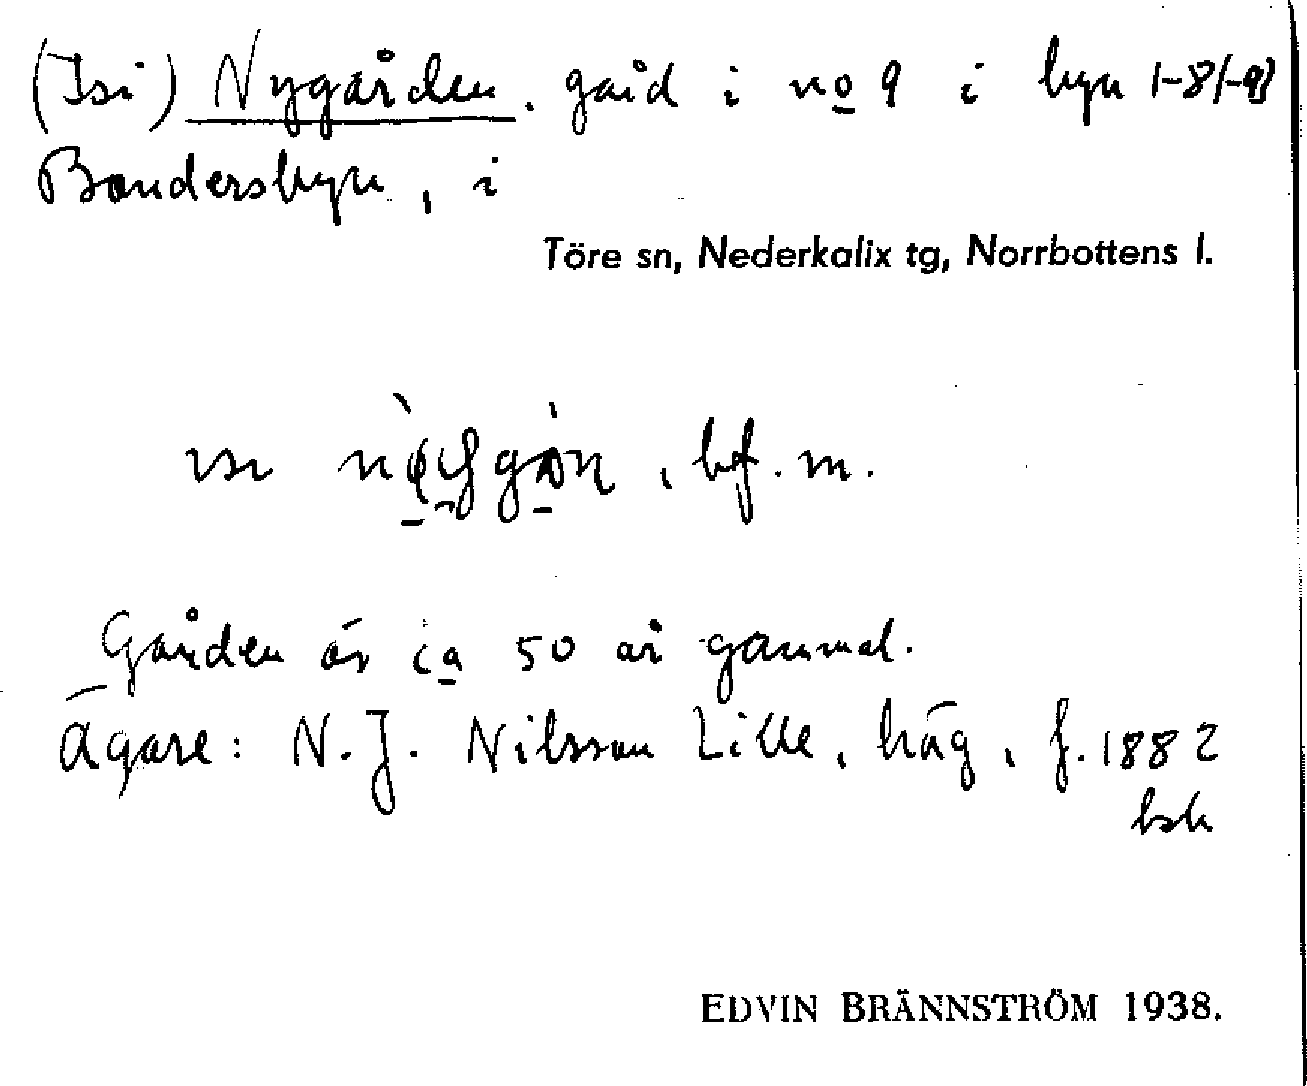 (Isi) Nygården. gård i no 9 i byn 1-8/-9)
Bondersbyn, i
Töre sn, Nederkalix tg, Norrbottens l.
bf. m.
Gården är ca 50 år gammal.
Ägare: N. J. Nilsson Lille, häg, f. 1882
bsk
EDVIN BRÄNNSTRÖM 1938.